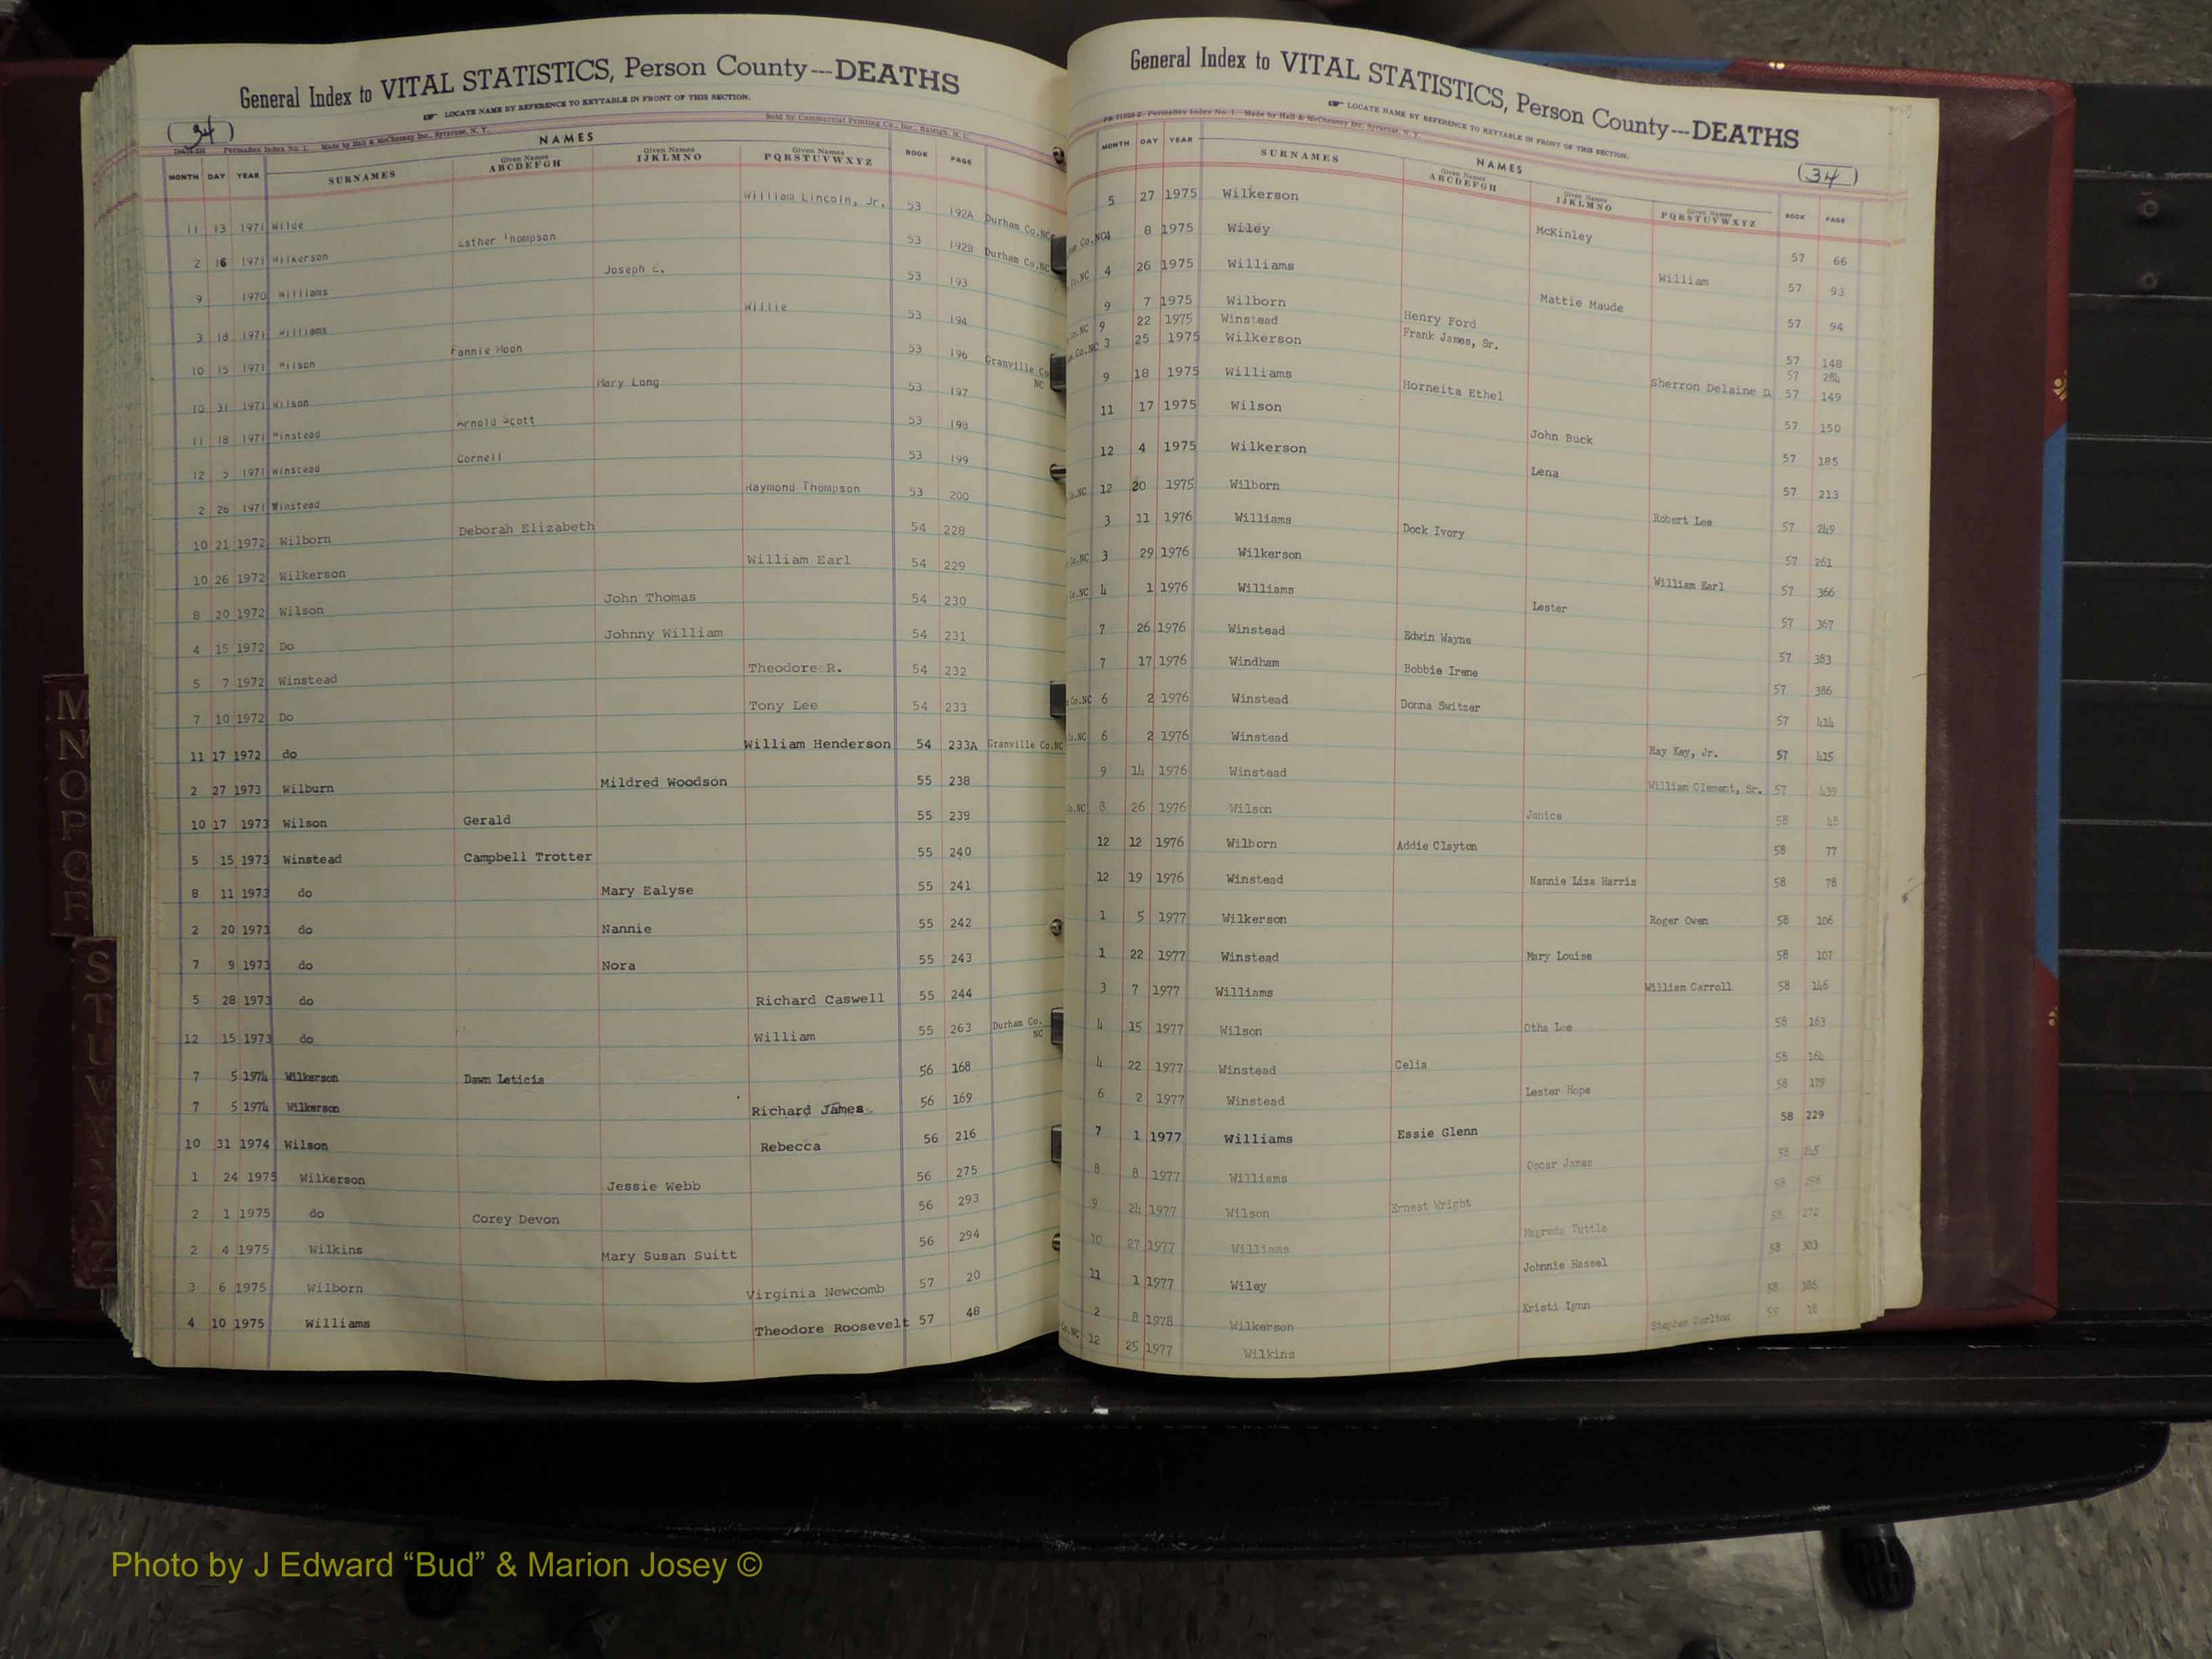 General Index to VITAL STATISTICS, Person County---DEATHS
LOCATE NAME BY REFERENCE TO KEYTABLE IN FRONT OF THIS SECTION.
(34)
Permaflex Index No. 1. Made by Hall & McChesney Inc., Syracuse, N. Y. Sold by Commercial Printing Co., Inc., Raleigh, N. C.
NAMES
MONTH DAY YEAR SURNAMES Given Names ABCDEFGH Given Names IJKLMNO Given Names PQRSTUVWXYZ BOOK PAGE
11 13 1971 Wilde William Lincoln, Jr. 53 192A Durham Co.NC
2 16 1971 Wilkerson Esther Thompson 53 192B Durham Co.NC
9 1970 Williams Joseph E. 53 193
3 18 1971 Williams Willie 53 194
10 15 1971 Wilson Fannie Moon 53 196 Granville Co NC
10 31 1971 Wilson Mary Long 53 197
11 18 1971 Winstead Arnold Scott 53 198
12 5 1971 Winstead Cornell 53 199
2 26 1971 Winstead Raymond Thompson 53 200
10 21 1972 Wilborn Deborah Elizabeth 54 228
10 26 1972 Wilkerson William Earl 54 229
8 20 1972 Wilson John Thomas 54 230
4 15 1972 Do Johnny William 54 231
5 7 1972 Winstead Theodore R. 54 232
7 10 1972 Do Tony Lee 54 233
11 17 1972 do William Henderson 54 233A Granville Co.NC
2 27 1973 Wilburn Mildred Woodson 55 238
10 17 1973 Wilson Gerald 55 239
5 15 1973 Winstead Campbell Trotter 55 240
8 11 1973 do Mary Ealyse 55 241
2 20 1973 do Nannie 55 242
7 9 1973 do Nora 55 243
5 28 1973 do Richard Caswell 55 244
12 15 1973 do William 55 263 Durham Co. NC
7 5 1974 Wilkerson Dawn Leticia 56 168
7 5 1974 Wilkerson Richard James 56 169
10 31 1974 Wilson Rebecca 56 216
1 24 1975 Wilkerson Jessie Webb 56 275
2 1 1975 do Corey Devon 56 293
2 4 1975 Wilkins Mary Susan Suitt 56 294
3 6 1975 Wilborn Virginia Newcomb 57 20
4 10 1975 Williams Theodore Roosevelt 57 48
General Index to VITAL STATISTICS, Person County---DEATHS
LOCATE NAME BY REFERENCE TO KEYTABLE IN FRONT OF THIS SECTION.
Permaflex Index No. 1. Made by Hall & McChesney Inc. Syracuse, N. Y.
(34)
NAMES
MONTH DAY YEAR SURNAMES Given Names ABCDEFGH Given Names IJKLMNO Given Names PQRSTUVWXYZ BOOK PAGE
5 27 1975 Wilkerson McKinley 57 66
Co.NC 4 8 1975 Wiley William 57 93
Co.NC 4 26 1975 Williams Mattie Maude 57 94
9 7 1975 Wilborn Henry Ford 57 148
Co.NC 9 22 1975 Winstead Frank James, Sr. 57 284
Co.NC 3 25 1975 Wilkerson Sherron Delaine D. 57 149
9 18 1975 Williams Horneita Ethel 57 150
11 17 1975 Wilson John Buck 57 185
12 4 1975 Wilkerson Lena 57 213
Co.NC 12 20 1975 Wilborn Robert Lee 57 249
3 11 1976 Williams Dock Ivory 57 261
Co.NC 3 29 1976 Wilkerson William Earl 57 366
Co.NC 4 1 1976 Williams Lester 57 367
7 26 1976 Winstead Edwin Wayne 57 383
7 17 1976 Windham Bobbie Irene 57 386
Co.NC 6 2 1976 Winstead Donna Switzer 57 414
Co.NC 6 2 1976 Winstead Ray Key, Jr. 57 415
9 14 1976 Winstead William Clement, Sr. 57 439
Co.NC 8 26 1976 Wilson Janice 58
12 12 1976 Wilborn Addie Clayton 58 77
12 19 1976 Winstead Nannie Liza Harris 58 78
1 5 1977 Wilkerson Roger Owen 58 106
1 22 1977 Winstead Mary Louise 58 107
3 7 1977 Williams William Carroll 58 146
4 15 1977 Wilson Otha Lee 58 163
4 22 1977 Winstead Celia 58 164
6 2 1977 Winstead Lester Hope 58 179
7 1 1977 Williams Essie Glenn 58 229
8 8 1977 Williams Oscar James 58 245
9 24 1977 Wilson Ernest Wright 58
10 27 1977 Williams Tuttle 58 272
11 1 1977 Wiley Johnnie Hassel 58 303
2 8 1978 Wilkerson Kristi Lynn 58 386
Co.NC 12 25 1977 Wilkins Stephen Carlton 59 18
M
N
O
P
Q
R
S
T
U
V
Z
Photo by J Edward “Bud” & Marion Josey ©